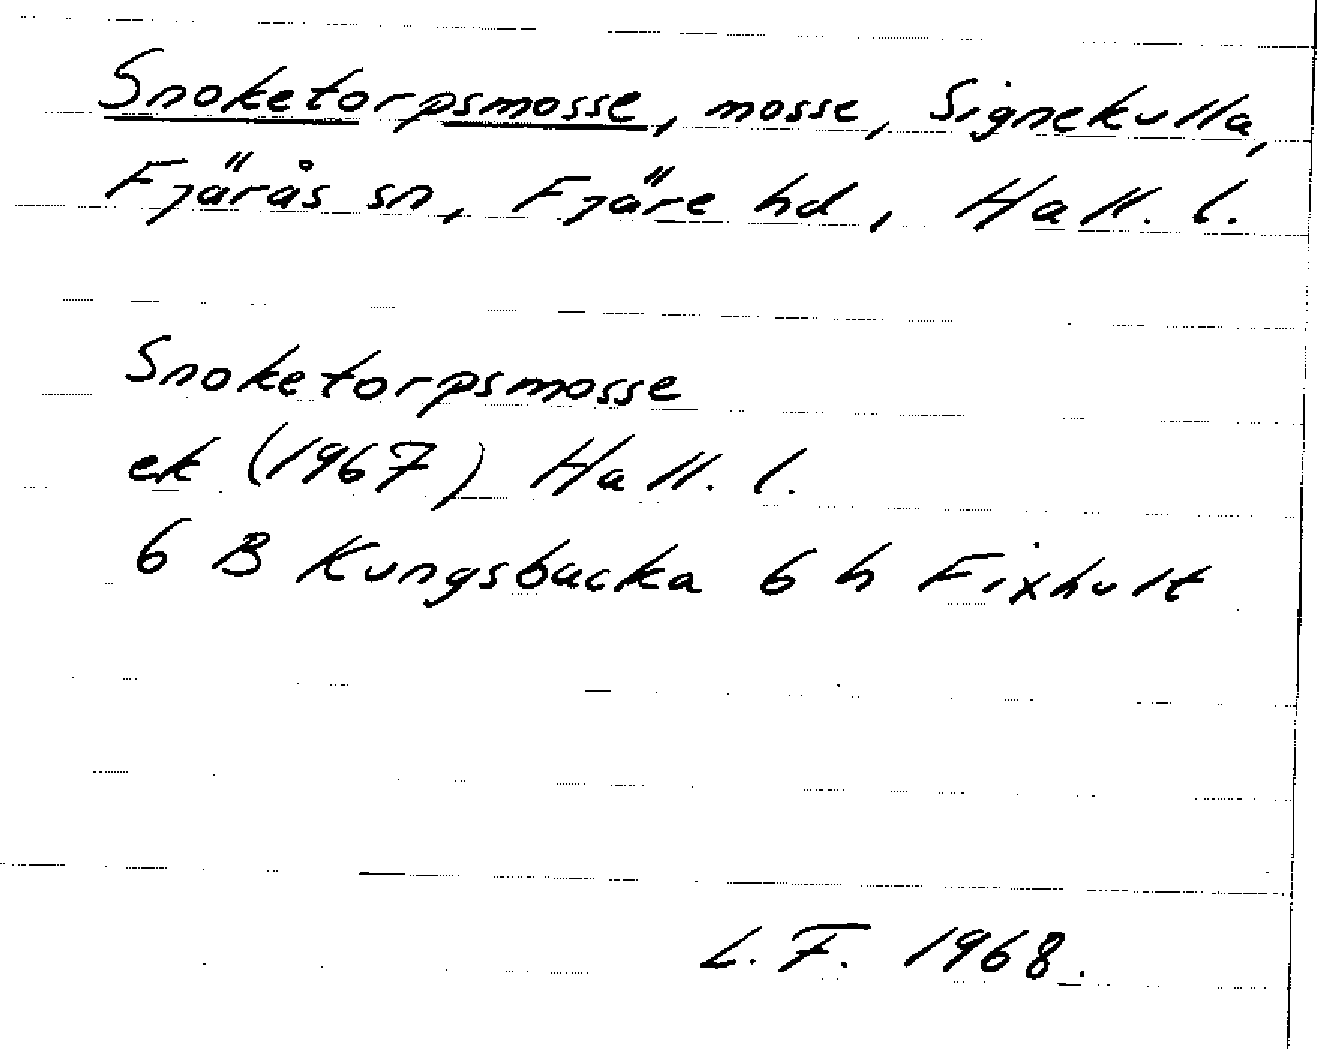 Snoketorpsmosse, mosse, Signekulla,
Fjärås sn, Fjäre hd, Hall. l.
Snoketorpsmosse
ek (1967) Hall. l.
6 B Kungsbacka 6 h Fixhult
L. F. 1968.